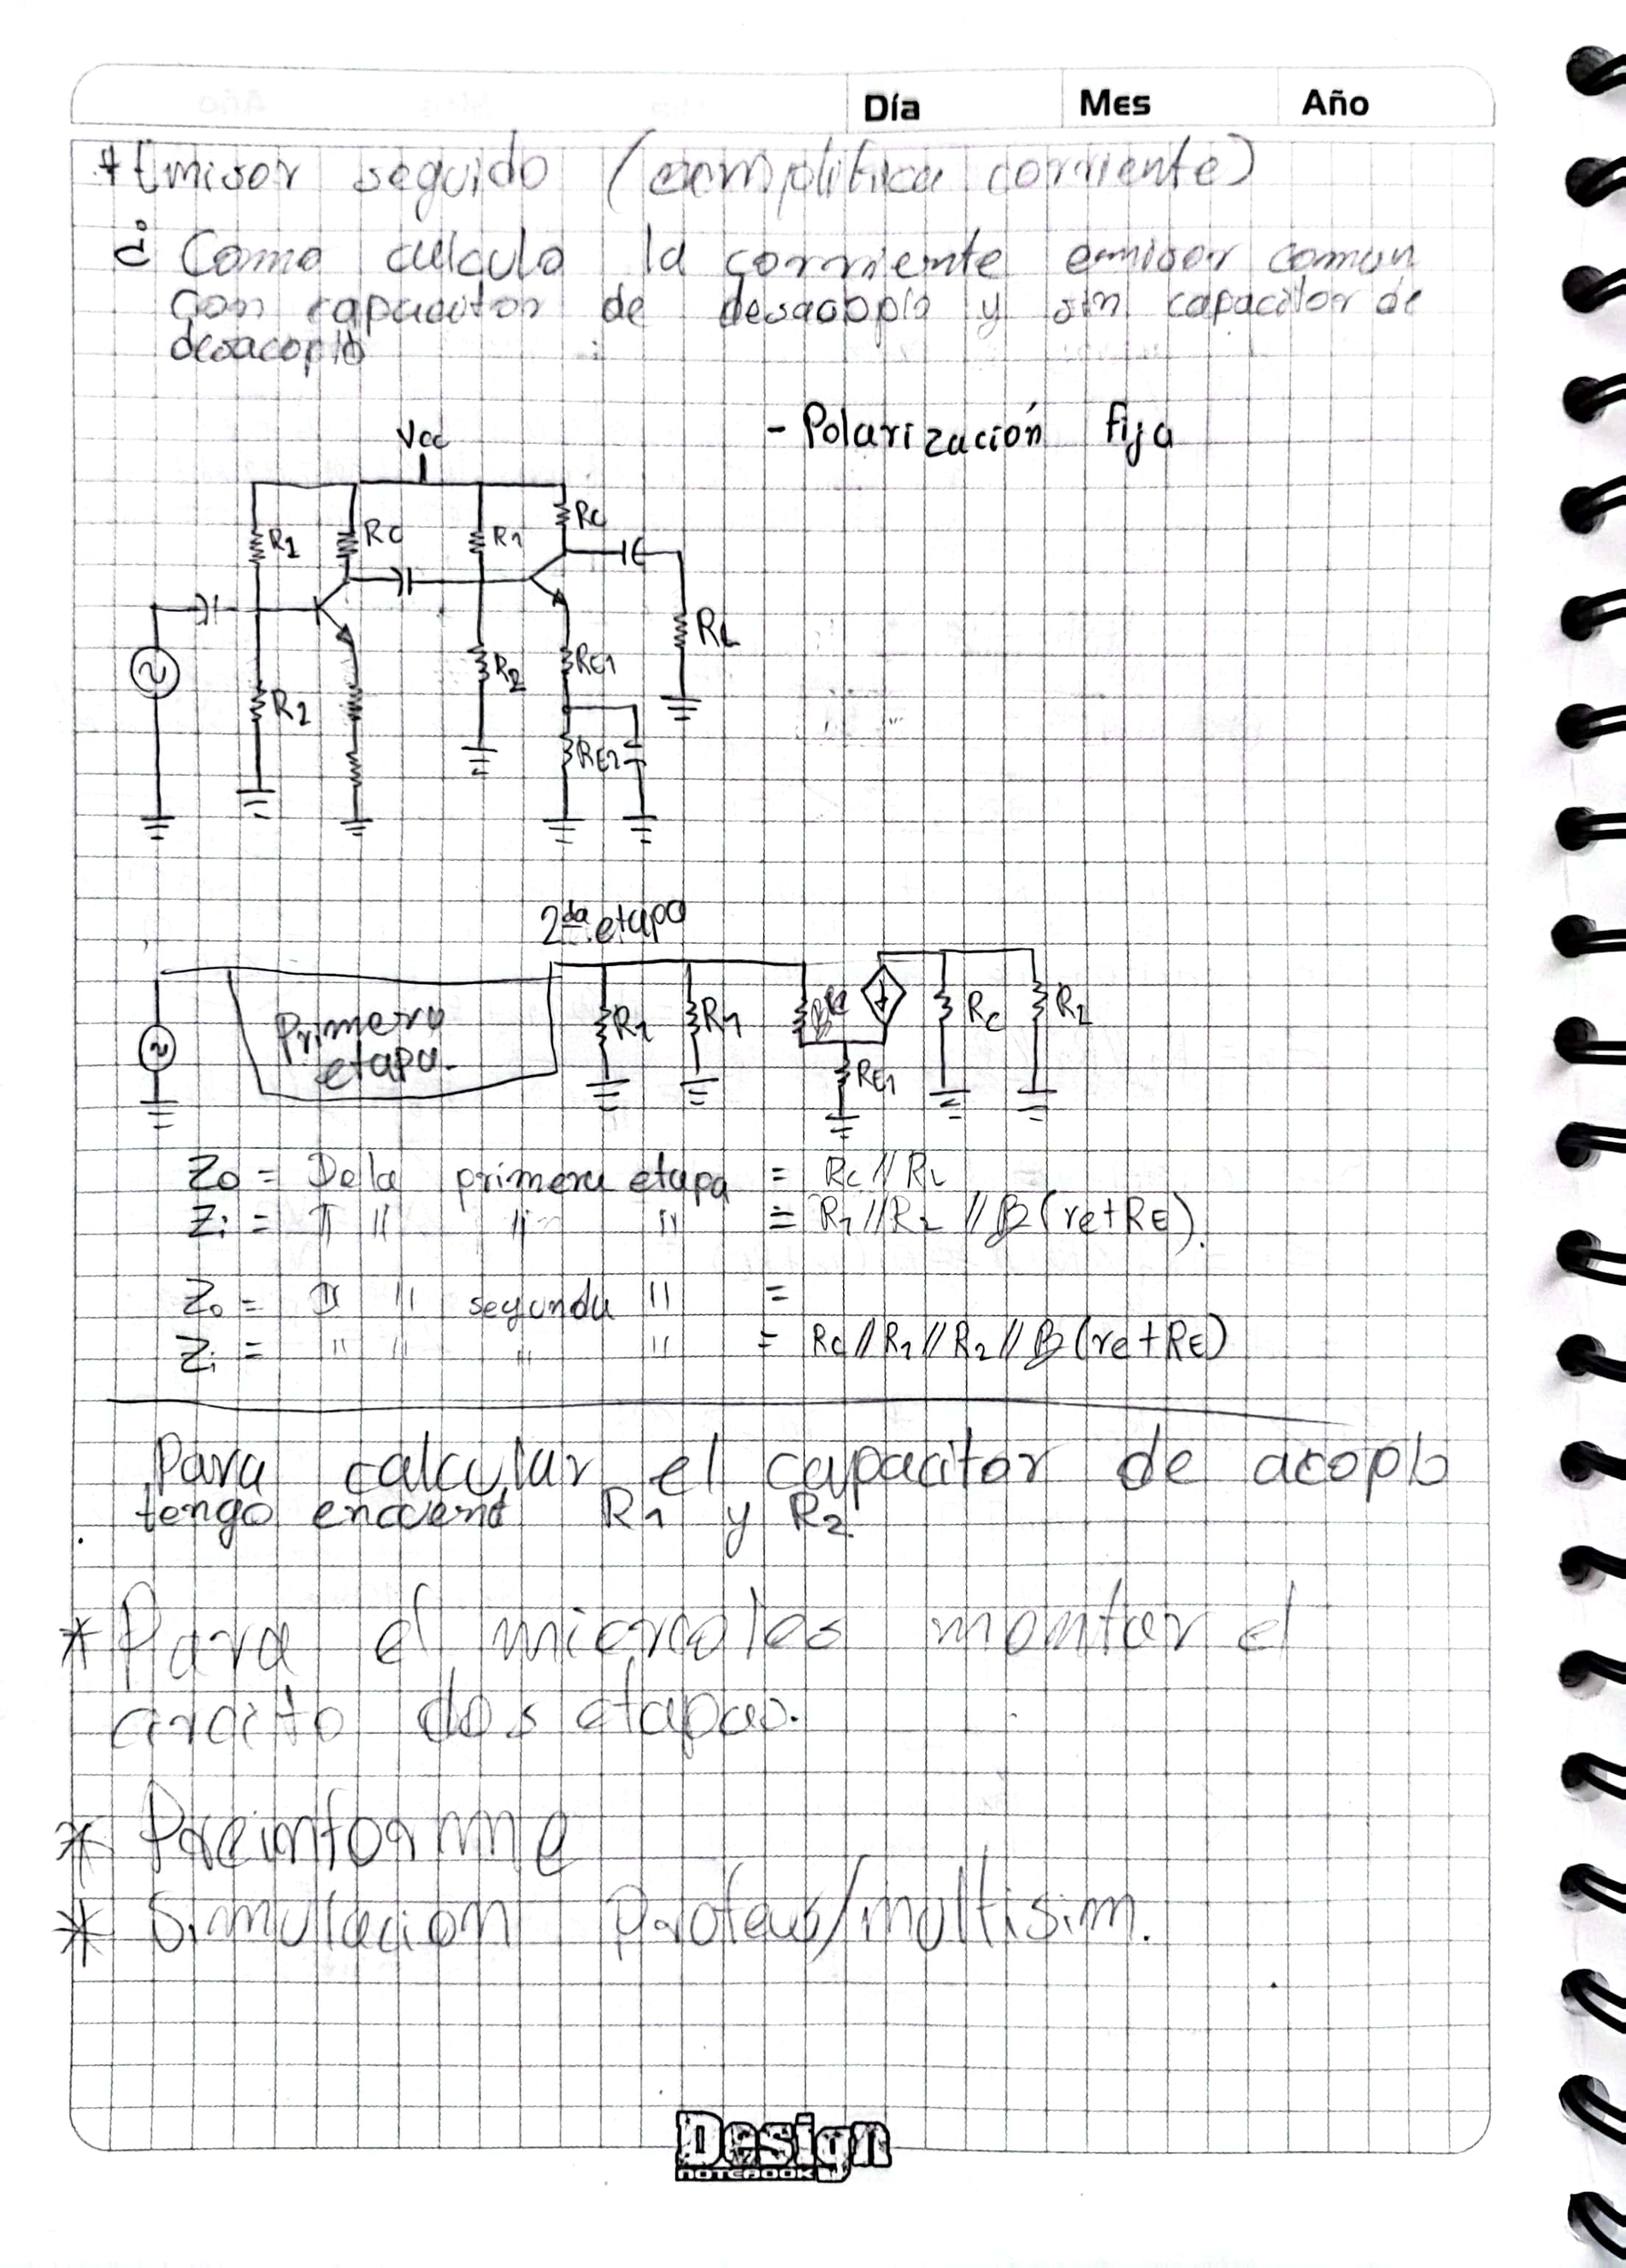 Día Mes Año
* Emisor seguido (amplifica corriente)
¿ Como calculo la corriente emisor comun
con capacitor de desacoplo y sin capacitor de
desacoplo
- Polarización fija
Vcc
R1 RC R1 RC
RL
R2 R2 RC1
RE2
2da etapa
Primera
etapa.
R1 R1 RC RL
RE1
Zo = De la primera etapa = Rc // RL
Zi = " " " " = R1 // R2 // B (re+RE).
Zo = " " segunda " =
Zi = " " " " = Rc // R1 // R2 // B (re+RE)
Para calcular el capacitor de acoplo
tengo encuent R1 y R2
* Para el miercoles montar el
circito dos etapas.
* Preinforme
* Simulacion Proteus/multisim.
Design
NOTEBOOK